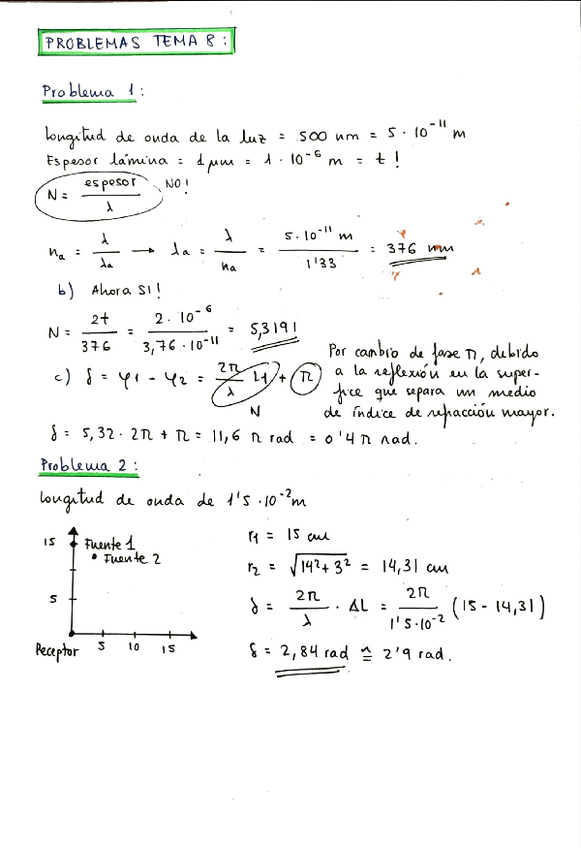 PROBLEMAS TEMA 8:
Problema 1:
Longitud de onda de la luz = 500 nm = 5 · 10⁻¹¹ m
Espesor lámina = 1 μm = 1 · 10⁻⁶ m = t !
N = espesor / λ NO!
nₐ = λ / λₐ → λₐ = λ / nₐ = 5·10⁻¹¹ m / 1'33 = 376 nm
b) Ahora SI!
N = 2t / 376 = 2·10⁻⁶ / 3,76·10⁻¹¹ = 5,3191
c) δ = φ1 - φ2 = 2π / λ + π
N
Por cambio de fase π, debido
a la reflexión en la super-
fice que separa un medio
de índice de refracción mayor.
δ = 5,32 · 2π + π = 11,6 π rad = 0'4 π rad.
Problema 2:
Longitud de onda de 1'5 · 10⁻² m
15 Fuente 1
Fuente 2
5
Receptor 5 10 15
r1 = 15 cm
r2 = √14² + 3² = 14,31 cm
δ = 2π / λ · ΔL = 2π / 1'5·10⁻² (15 - 14,31)
δ = 2,84 rad ≅ 2'9 rad.